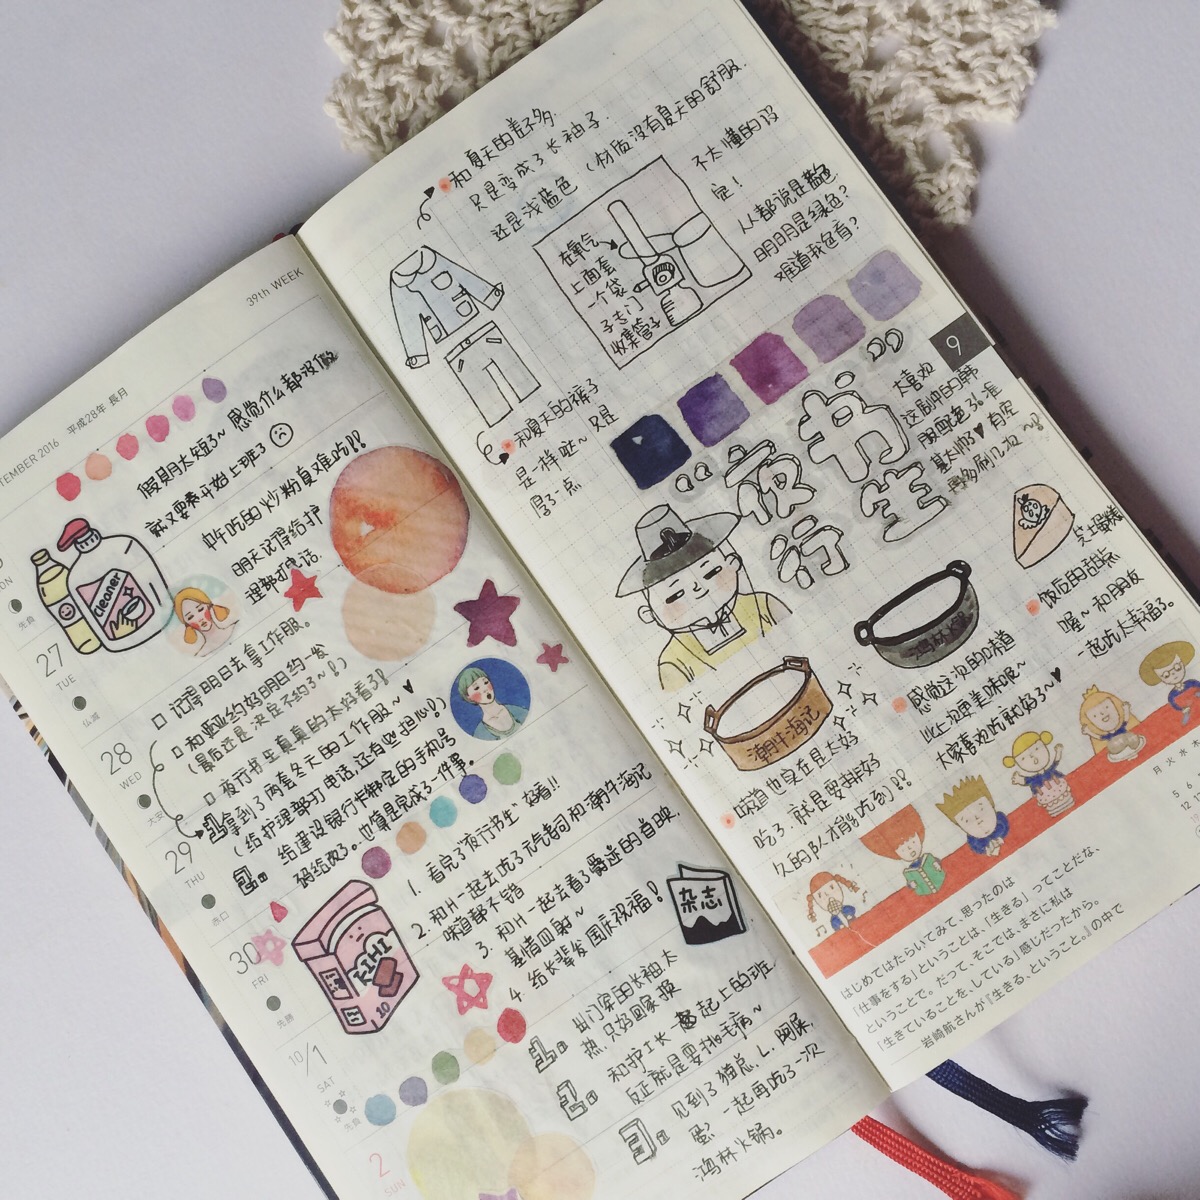 39th WEEK
TEMBER 2016 平成28年 長月
假期太短了~ 感觉什么都没做
就又要开始上班了
中午吃的炒粉真难吃!!
明天记得给护
理部打电话.
Cleaner
先負
27
TUE
仏滅
28
WED
大安
29
THU
赤口
30
FRI
先勝
10/1
SAT
先負
2
SUN
记得明日去拿工作服。
约好明日约一发
(最后还是决定不约了~!)
夜行书生真真的太好看了!
1. 拿到了两套冬天的工作服~♥
(给护理部打电话,还有些担心!)
2. 给建设银行卡绑定的手机号
码给改了。也算是完成了一件事。
1. 看完了"夜行书生" 好看!!
2. 和H一起去吃了元气寿司和潮牛海记
味道都不错
3. 和H一起去看了爵迹的首映,
基情四射~
4. 给长辈发国庆祝福!
杂志
10
1. 出门穿的长袖.太
热.只好回家换
2. 和护工长一起上的班.
反正就是要挑毛病~
3. 见到了猫总、L、阿屎,
一起再吃了一次
鸿林火锅。
和夏天的差不多.
只是变成了长袖子.
还是浅蓝色 (材质没有夏天的舒服.
在氧气
上面套
一个袋
子专门
收集管子
不太懂的设
定!
人人都说是蓝色
明明是绿色?
难道我色盲?
和夏天的裤子
是一样哒~ 只是
厚了一点
9
"夜行书生"
太喜欢
这剧中的韩
服
基太帅了♥ 有空
再多刷几次~!!
鸿林火锅
潮牛海记
味道也实在是太好
吃了.就是要排好
久的队才能吃到!!
感觉这次的味道
比上次要美味呢~
大家喜欢吃就好了~♥
芝士蛋糕
饭后的甜点
喔~ 和朋友
一起吃太幸福了。
月 火 水 木
はじめてはたらいてみて、思ったのは
「仕事をする」ということは、「生きる」ってことだな、
ということで。だって、そこでは、まさに私は
「生きていることを、している」感じだったから。
岩崎航さんが『生きる、ということ。』の中で